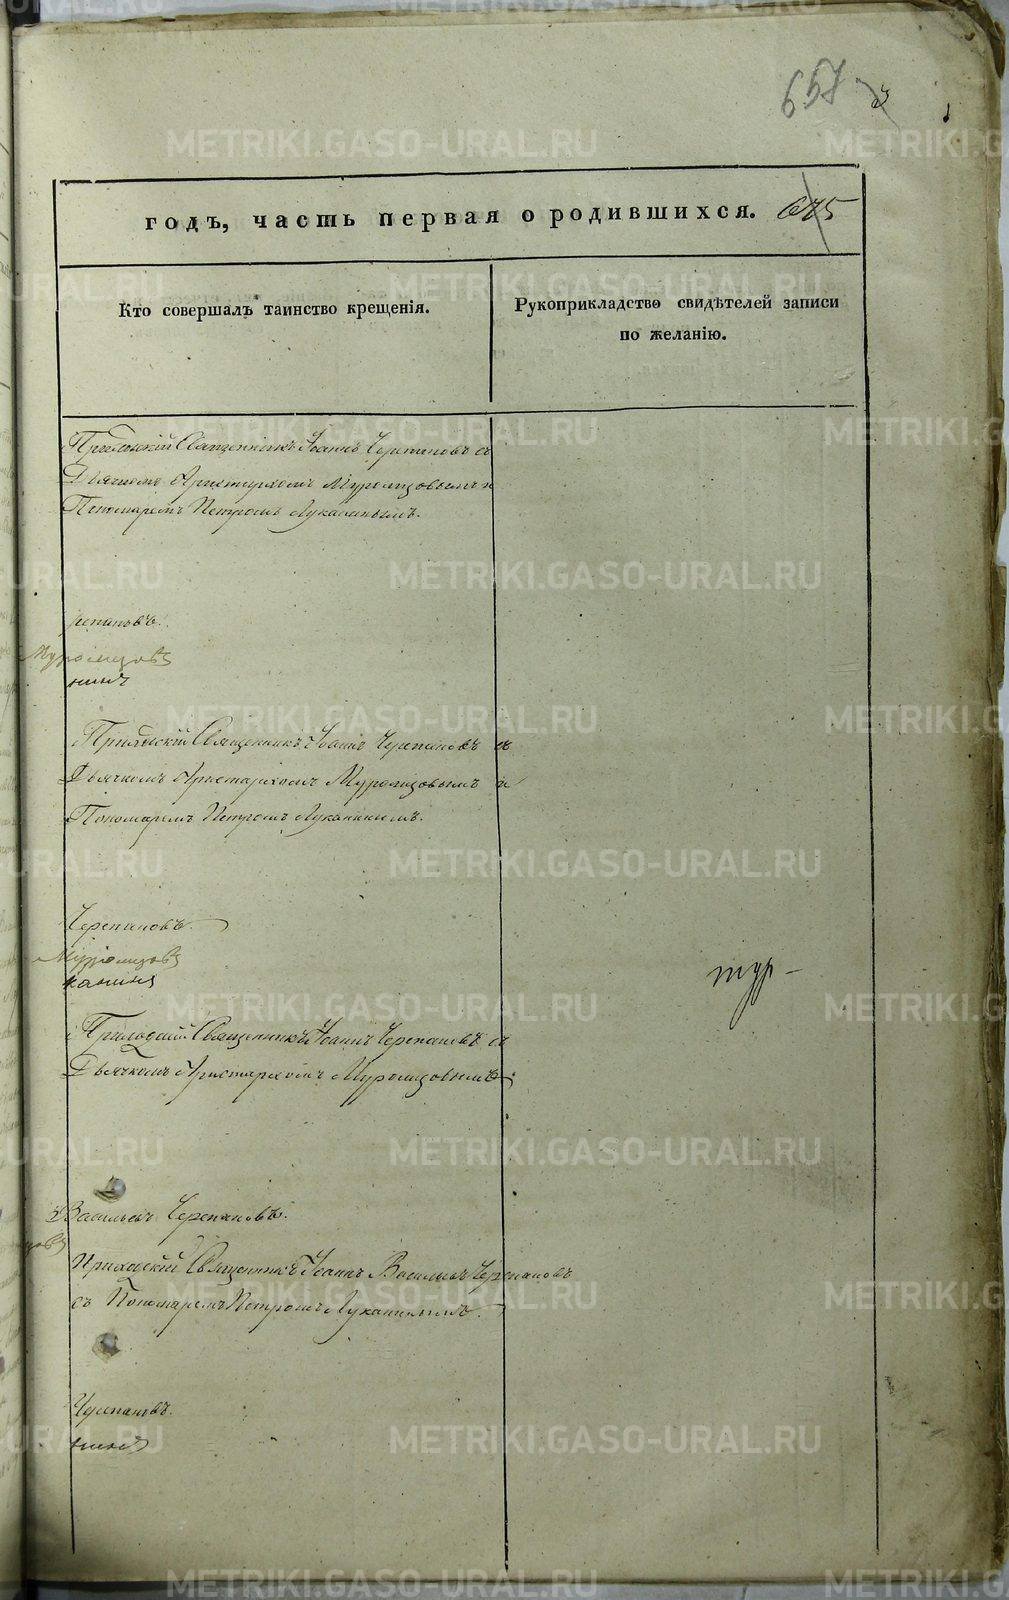 657
годъ, часть первая о родившихся. 675
Кто совершалъ таинство крещенія.
Рукоприкладство свидѣтелей записи
по желанію.
Приходскій Священникъ Іоаннъ Черепановъ съ
Дьячкомъ Аристархомъ Муромцовымъ и
Пономаремъ Петромъ Луканинымъ.
репановъ.
Муромцовъ
нинъ
Приходскій Священникъ Іоаннъ Черепановъ съ
Дьячкомъ Аристархомъ Муромцовымъ и
Пономаремъ Петромъ Луканинымъ.
Черепановъ.
Муромцовъ
канинъ
тур-
Приходскій Священникъ Іоаннъ Черепановъ съ
Дьячкомъ Аристархомъ Муромцовымъ.
Васильевъ Черепановъ.
цовъ
Приходскій Священникъ Іоаннъ Васильевъ Черепановъ
съ Пономаремъ Петромъ Луканинымъ.
Черепановъ.
нинъ
METRIKI.GASO-URAL.RU